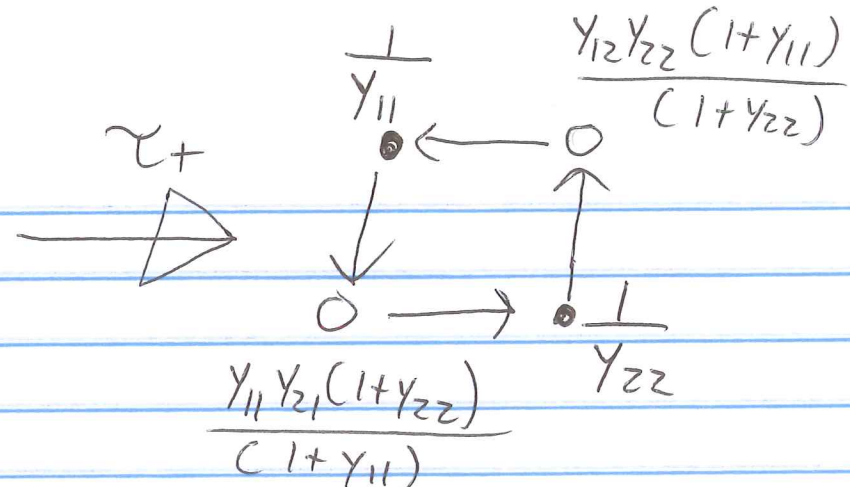 1/y₁₁
y₁₂y₂₂(1+y₁₁)/(1+y₂₂)
τ₊
1/y₂₂
y₁₁y₂₁(1+y₂₂)/(1+y₁₁)